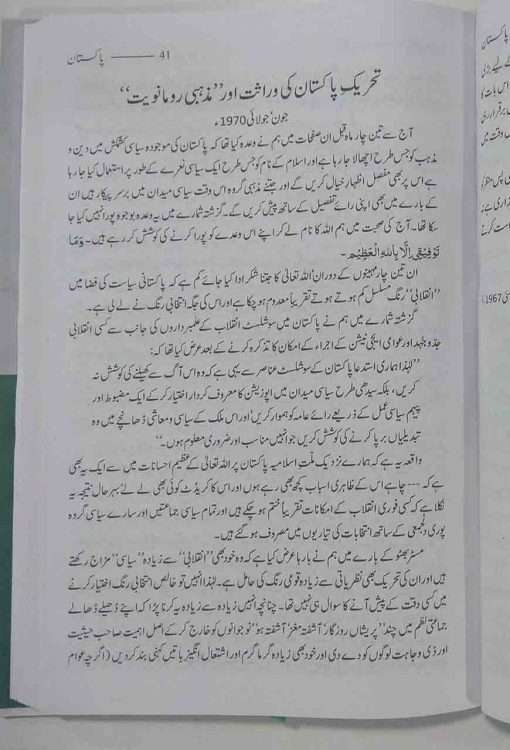 41 ——— پاکستان
تحریکِ پاکستان کی وراثت اور ’’مذہبی رومانویت‘‘
جون‘ جولائی 1970ء
آج سے تین چار ماہ قبل ان صفحات میں ہم نے وعدہ کیا تھا کہ پاکستان کی موجودہ سیاسی کشمکش میں دین و
مذہب کو جس طرح اچھالا جا رہا ہے اور اسلام کے نام کو جس طرح ایک سیاسی نعرے کے طور پر استعمال کیا جا رہا
ہے اس پر بھی مفصل اظہارِ خیال کریں گے اور جتنے مذہبی گروہ اس وقت سیاسی میدان میں برسرِ پیکار ہیں ان
کے بارے میں بھی اپنی رائے تفصیل کے ساتھ پیش کریں گے۔ گزشتہ شمارے میں یہ وعدہ بوجوہ پورا نہیں کیا جا
سکا تھا۔ آج کی صحبت میں ہم اللہ کا نام لے کر اپنے اس وعدے کو پورا کرنے کی کوشش کر رہے ہیں۔ وَمَا
تَوْفِيْقِیْ اِلَّا بِاللهِ الْعَظِيْمِ۔
ان تین چار مہینوں کے دوران اللہ تعالیٰ کا جتنا شکر ادا کیا جائے کم ہے کہ پاکستانی سیاست کی فضا میں
’’انقلابی‘‘ رنگ مسلسل کم ہوتے ہوتے تقریباً معدوم ہو چکا ہے اور اس کی جگہ انتخابی رنگ نے لے لی ہے۔
گزشتہ شمارے میں ہم نے پاکستان میں سوشلسٹ انقلاب کے علمبرداروں کی جانب سے کسی انقلابی
جدوجہد اور عوامی ایجی ٹیشن کے اجراء کے امکان کا تذکرہ کرنے کے بعد عرض کیا تھا کہ:
’’لہٰذا ہماری استدعا پاکستان کے سوشلسٹ عناصر سے یہی ہے کہ وہ اس آگ سے کھیلنے کی کوشش نہ
کریں‘ بلکہ سیدھی طرح سیاسی میدان میں اپوزیشن کا معروف کردار اختیار کر کے ایک مضبوط اور
پیہم سیاسی عمل کے ذریعے رائے عامہ کو ہموار کریں‘ اور اس ملک کے سیاسی و معاشی ڈھانچے میں وہ
تبدیلیاں برپا کرنے کی کوشش کریں جو انہیں مناسب اور ضروری معلوم ہوں۔‘‘
واقعہ یہ ہے کہ ہمارے نزدیک ملتِ اسلامیہ پاکستان پر اللہ تعالیٰ کے عظیم احسانات میں سے ایک یہ بھی
ہے کہ --- چاہے اس کے ظاہری اسباب کچھ بھی رہے ہوں اور اس کا کریڈٹ کوئی بھی لے لے‘ بہر حال نتیجہ یہ
نکلا ہے کہ کسی فوری انقلاب کے امکانات تقریباً ختم ہو چکے ہیں اور تمام سیاسی جماعتیں اور سارے سیاسی گروہ
پوری دلجمعی کے ساتھ انتخابات کی تیاریوں میں مصروف ہو گئے ہیں۔
مسٹر بھٹو کے بارے میں ہم نے بارہا عرض کیا ہے کہ وہ خود بھی ’’انقلابی‘‘ سے زیادہ ’’سیاسی‘‘ مزاج رکھتے
ہیں اور ان کی تحریک بھی نظریاتی سے زیادہ قومی رنگ کی حامل ہے۔ لہٰذا انہیں تو خالص انتخابی رنگ اختیار کرنے
میں کسی دقت کے پیش آنے کا سوال ہی نہیں تھا۔ چنانچہ انہیں زیادہ سے زیادہ یہ کرنا پڑا کہ اپنے ڈھیلے ڈھالے
جماعتی نظم میں چند ’’پریشاں روزگار‘ آشفتہ مغز‘ آشفتہ ہو‘‘ نوجوانوں کو خارج کر کے اصل اہمیت صاحبِ حیثیت
اور ذی وجاہت لوگوں کو دے دی اور خود بھی زیادہ گرما گرم اور اشتعال انگیز باتیں کہنی بند کر دیں (اگرچہ عوام
پاکستان
1967ء)